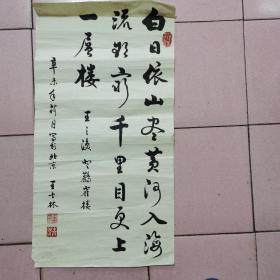 白日依山尽黄河入海
流欲穷千里目更上
一層楼 王之涣 登鹳雀楼
辛未年 月写於北京 王 林